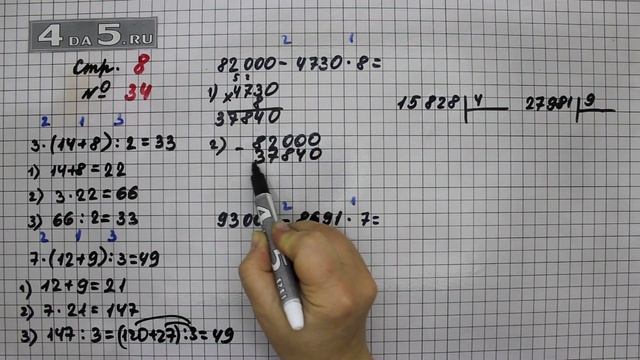 4 DA 5.RU
Стр. 8
№ 34
2 1 3
3·(14+8):2=33
1) 14+8=22
2) 3·22=66
3) 66:2=33
2 1 3
7·(12+9):3=49
1) 12+9=21
2) 7·21=147
3) 147:3=(120+27):3=49
2 1
82000-4730·8=
5 2
1) ×4730
8
37840
2) -82000
37840
2 1
- 8691·7=
15828 4
27981 9